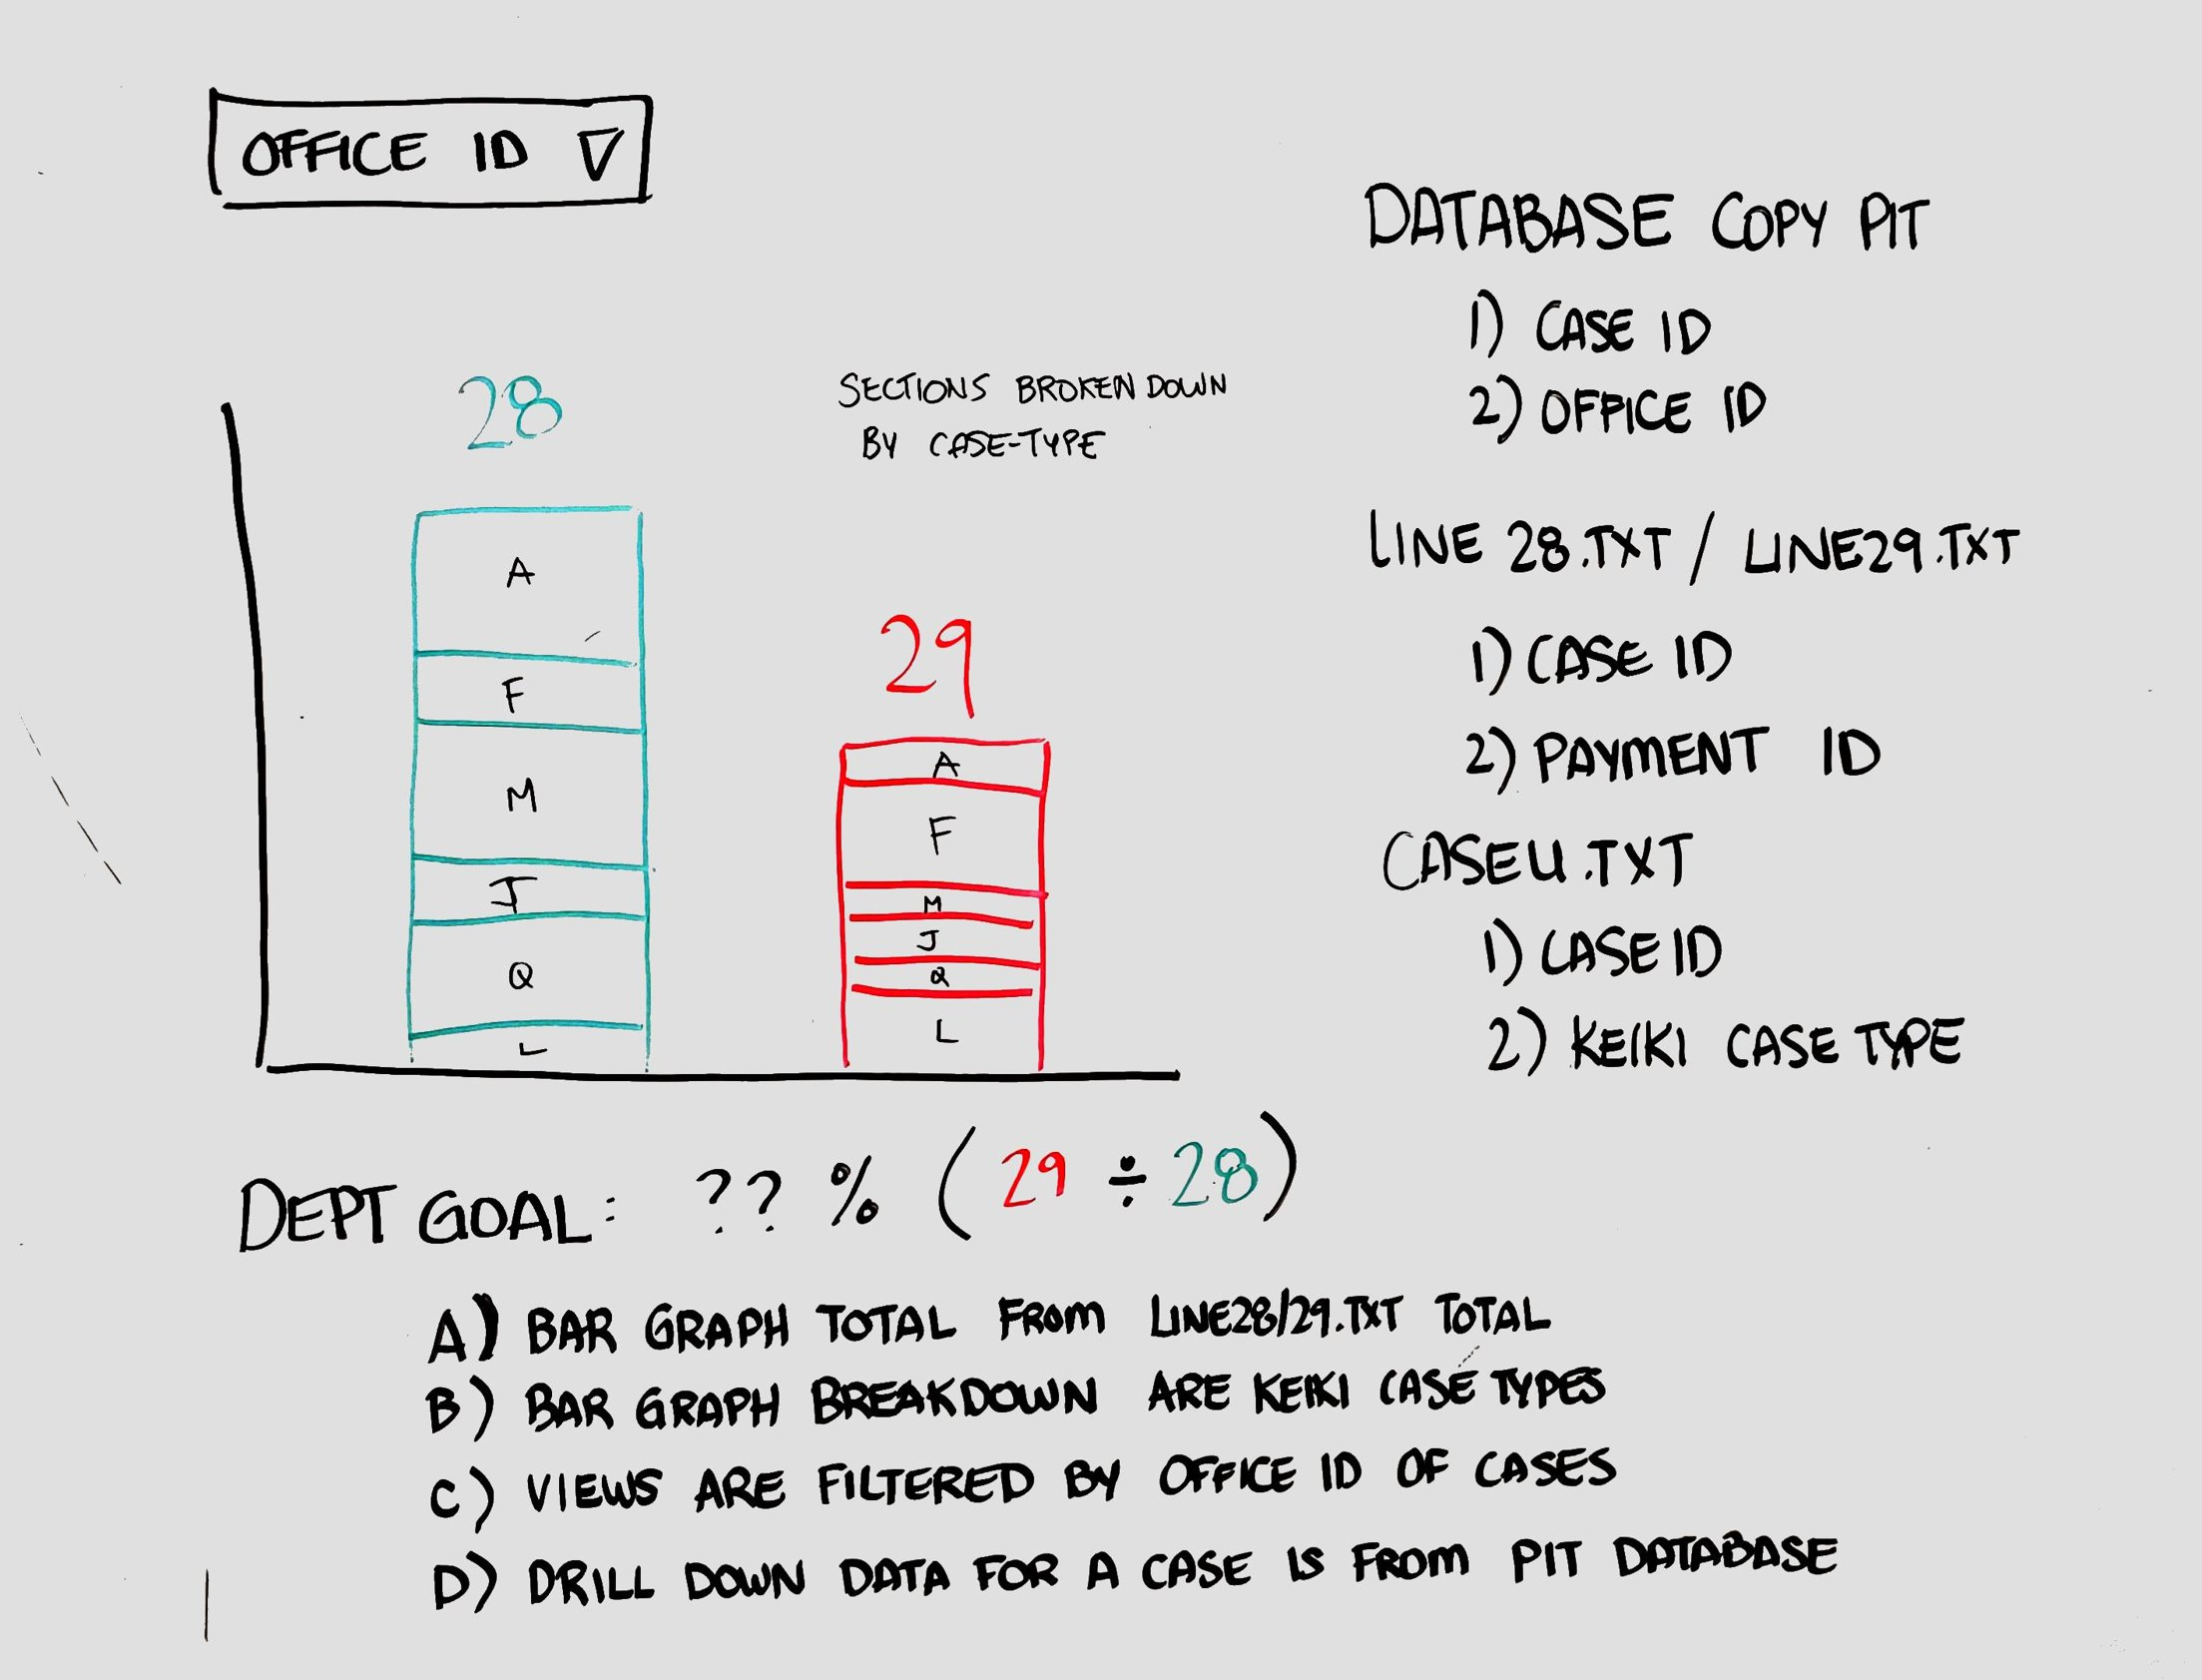 OFFICE ID ▽
28
SECTIONS BROKEN DOWN
BY CASE-TYPE
A
F
M
J
Q
L
29
A
F
M
J
Q
L
DATABASE COPY PIT
1) CASE ID
2) OFFICE ID
LINE 28.TXT / LINE29.TXT
1) CASE ID
2) PAYMENT ID
CASEU.TXT
1) CASE ID
2) KEIKI CASE TYPE
DEPT GOAL: ?? % (29 ÷ 28)
A) BAR GRAPH TOTAL FROM LINE28/29.TXT TOTAL
B) BAR GRAPH BREAKDOWN ARE KEIKI CASE TYPES
C) VIEWS ARE FILTERED BY OFFICE ID OF CASES
D) DRILL DOWN DATA FOR A CASE IS FROM PIT DATABASE